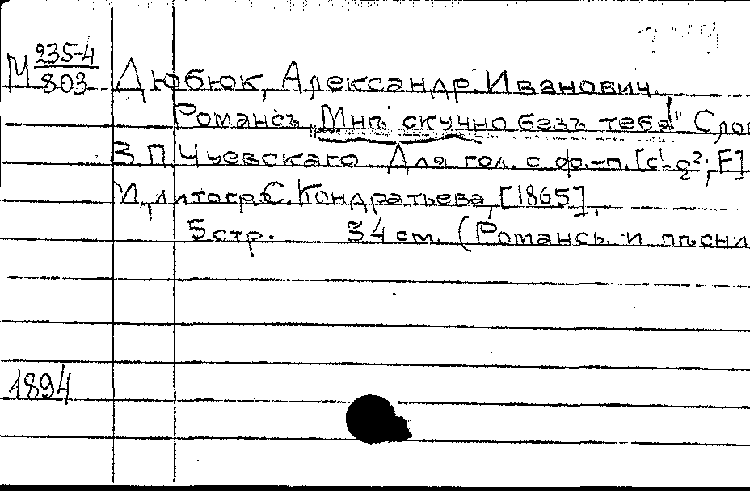 М 235-4
803
Дюбюк, Александр Иванович.
Романсъ „Мнѣ скучно безъ тебя!" Слов
З.П. Чуевскаго Для гол. с ф.-п. [c¹-g²; F]
М, литогр. С. Кондратьева, [1865].
5 стр. 34 см. (Романсы и пѣсни
1894